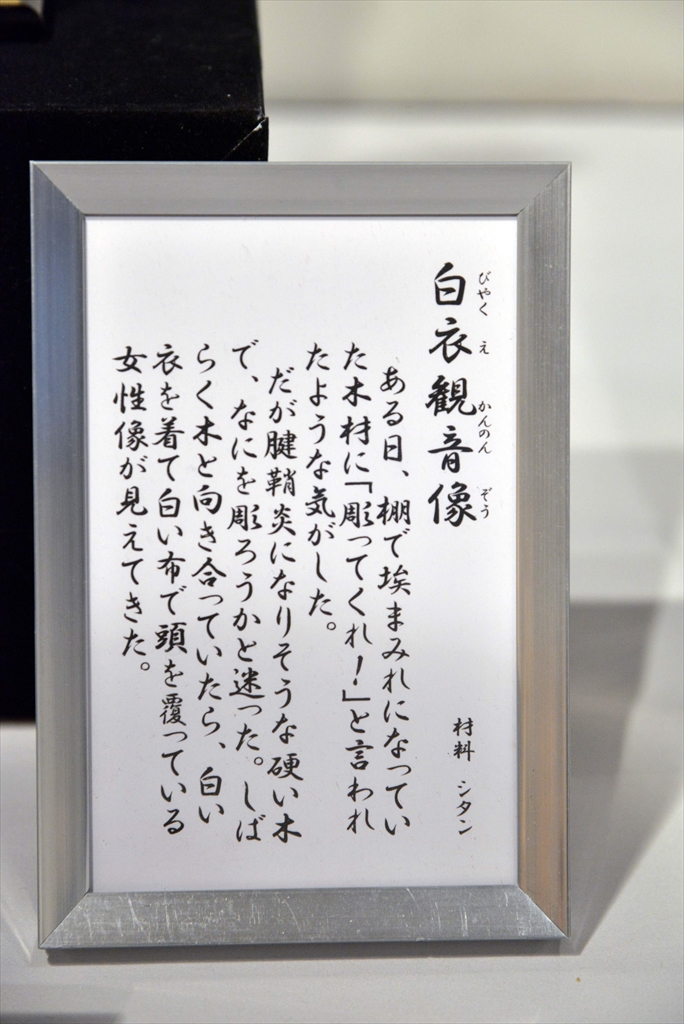 白衣観音像
びゃくえかんのんぞう
材料 シタン
ある日、棚で埃まみれになってい
た木材に「彫ってくれ!」と言われ
たような気がした。
だが腱鞘炎になりそうな硬い木
で、なにを彫ろうかと迷った。しば
らく木と向き合っていたら、白い
衣を着て白い布で頭を覆っている
女性像が見えてきた。